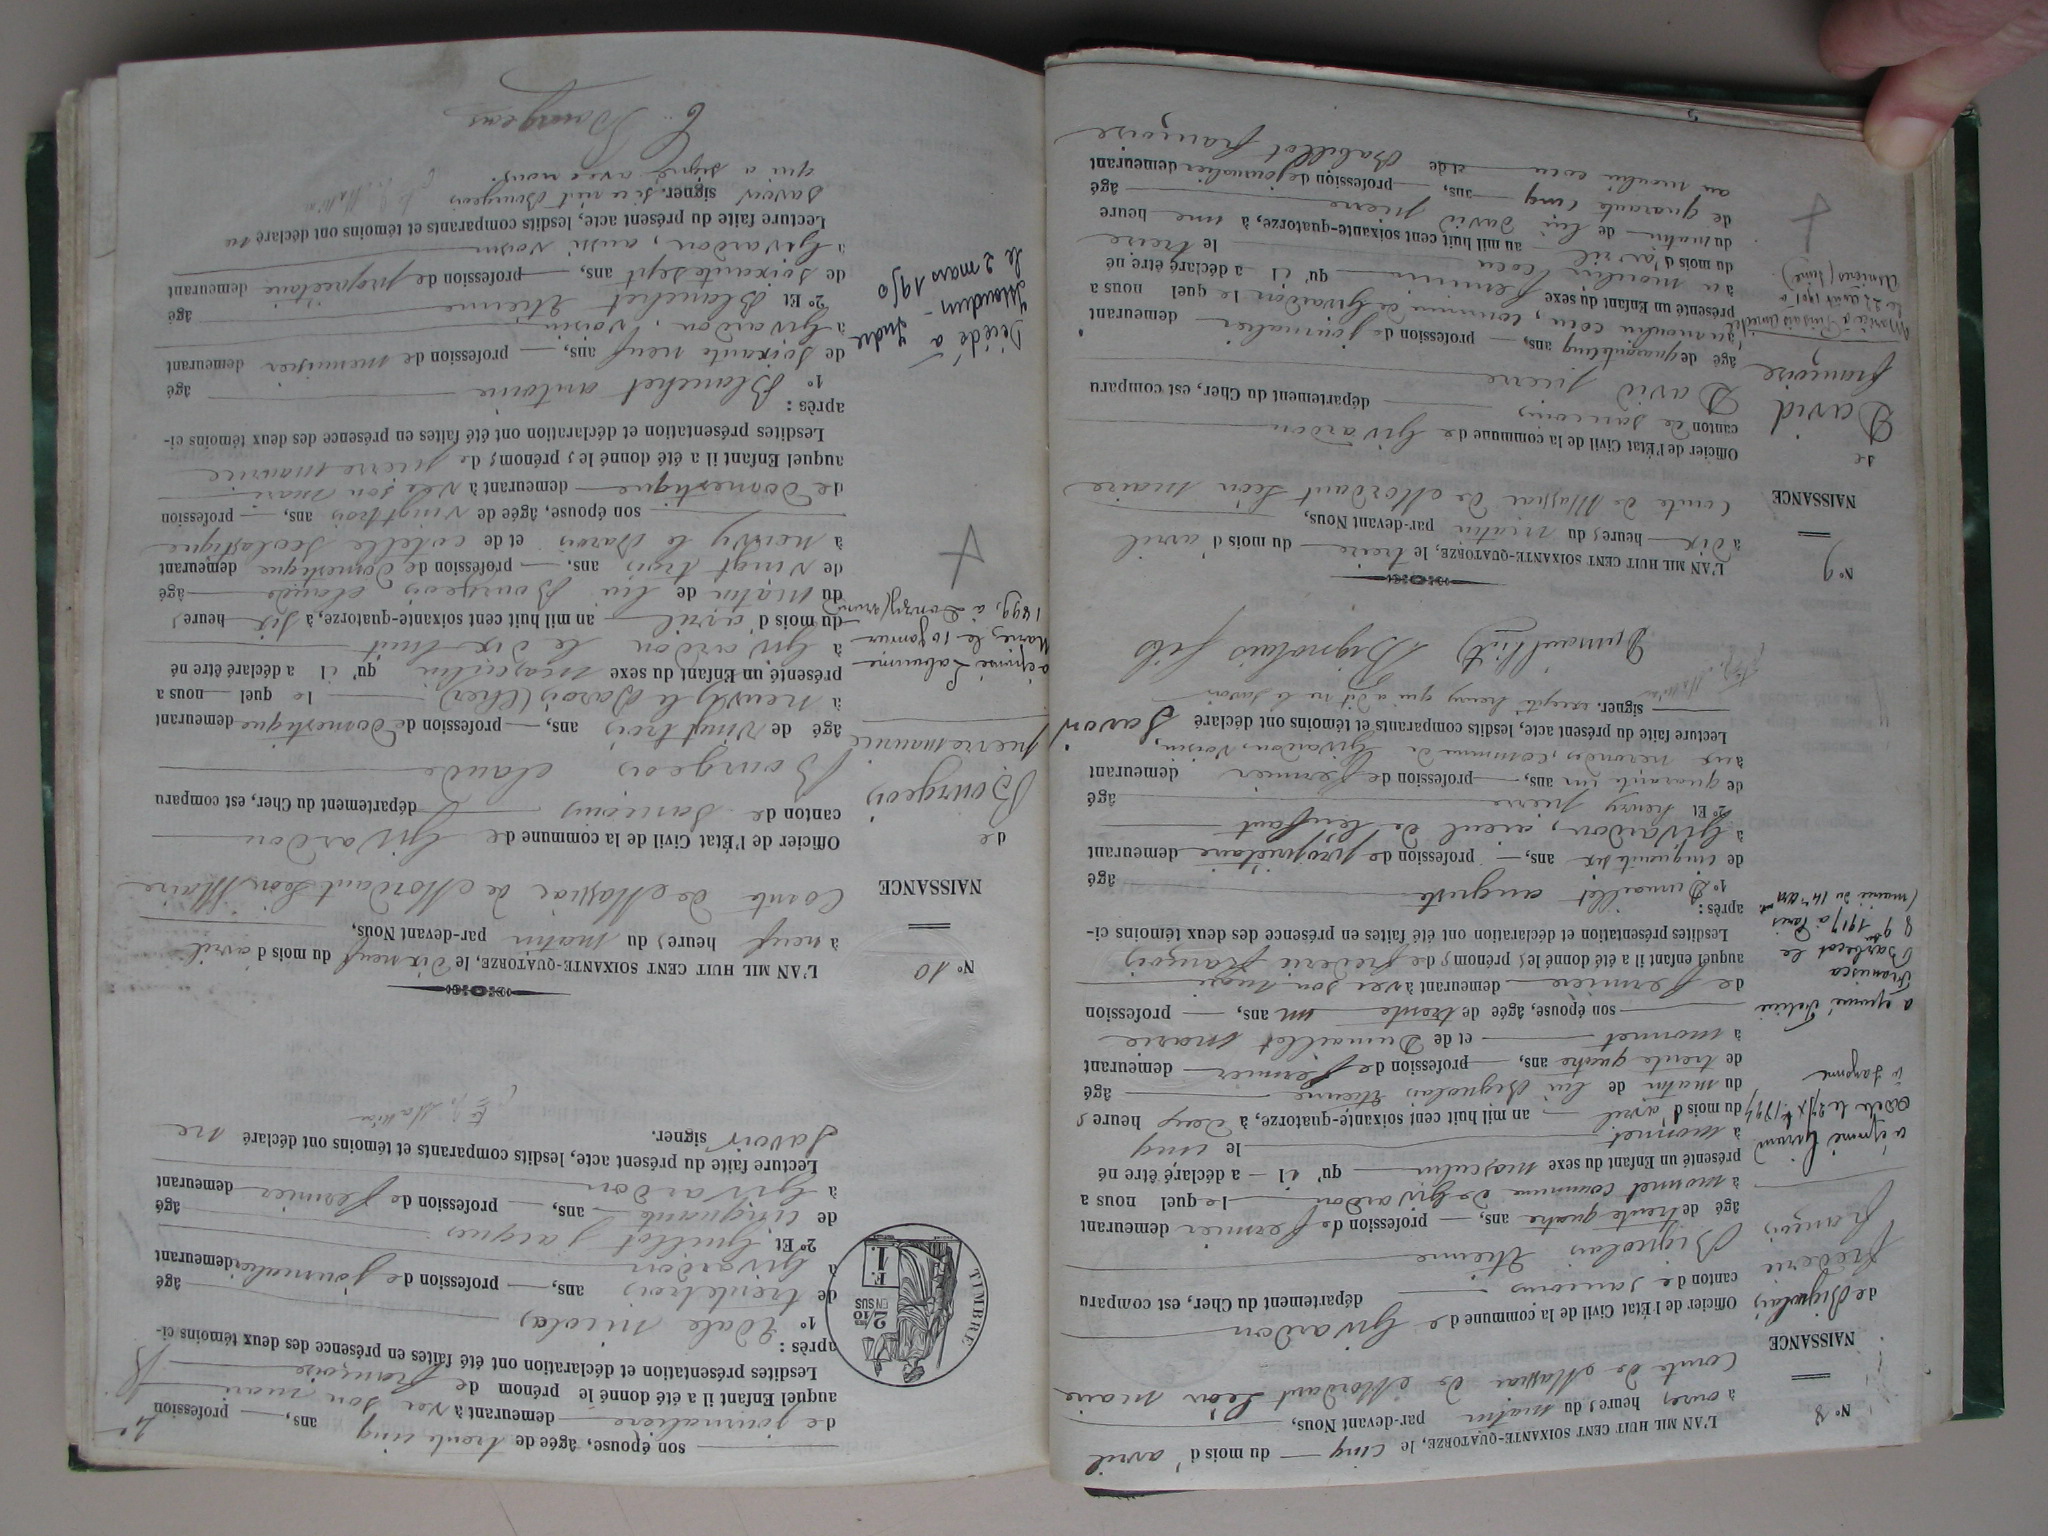 N° 8
NAISSANCE
de Bignolais
frédéric
françois
a épousé Félicie
Francisca
Barbecot le
9 9bre 1917 à Paris
(mairie du 14e arrt
L'AN MIL HUIT CENT SOIXANTE-QUATORZE, le cinq du mois d'avril
à onze heures du matin par-devant Nous,
Comte de Massiac de Mordant Léon maire
Officier de l'État Civil de la commune de Givardon
canton de Sancoins département du Cher, est comparu
Bignolais Etienne
âgé de trente quatre ans, profession de fermier demeurant
à monnet commune de Givardon lequel nous a
présenté un Enfant du sexe masculin qu'il a déclaré être né
à monnet le cinq
du mois d'avril an mil huit cent soixante-quatorze, à deux heures
du matin de lui Bignolais Etienne âgé
de trente quatre ans, profession de fermier demeurant
à monnet et de Dumaillet marie
son épouse, âgée de trente un ans, profession
de fermière demeurant avec son mari
auquel enfant il a été donné les prénoms de frédéric françois
Lesdites présentation et déclaration ont été faites en présence des deux témoins ci-
après :
1° Dumaillet auguste âgé
de cinquante six ans, profession de propriétaire demeurant
à Givardon, aïeul de l'enfant
2° Et henry pierre âgé
de quarante un ans, profession de fermier demeurant
commune de Givardon, voisin,
Lecture faite du présent acte, lesdits comparants et témoins ont déclaré savoir
signer. excepté henry qui a dit ne le savoir
Dumaillet Bignolais fils
N° 9
NAISSANCE
de
David
françoise
L'AN MIL HUIT CENT SOIXANTE-QUATORZE, le treize du mois d'avril
à dix heures du matin par-devant Nous,
Comte de Massiac de Mordant Léon maire
Officier de l'État Civil de la commune de Givardon
canton de Sancoins département du Cher, est comparu
David pierre
âgé de quarante cinq ans, profession de journalier demeurant
au moulin cocu, commune de Givardon lequel nous a
présenté un Enfant du sexe féminin qu'il a déclaré être né
au moulin cocu le treize
du mois d'avril au mil huit cent soixante-quatorze, à une heure
du matin de lui David pierre âgé
de quarante cinq ans, profession de journalier demeurant
au moulin cocu et de Babillot françoise
son épouse, âgée de trente cinq ans, profession
de journalière demeurant avec son mari
auquel Enfant il a été donné le prénom de françoise
Lesdites présentation et déclaration ont été faites en présence des deux témoins ci-
après :
1° Dale nicolas âgé
de trente trois ans, profession de journalier demeurant
à Givardon
2° Et Guillot Jacques âgé
de cinquante ans, profession de fermier demeurant
à Givardon
Lecture faite du présent acte, lesdits comparants et témoins ont déclaré ne
savoir signer.
TIMBRE
2/10
EN SUS
F.
1.
N° 10
NAISSANCE
de
Bourgeois
pierre maurice
a épousé
Marie, le 10 janvier
1899, à
Décédé à
Issoudun - Indre
le 2 mars 1950
L'AN MIL HUIT CENT SOIXANTE-QUATORZE, le Dix neuf du mois d'avril
à neuf heures du matin par-devant Nous,
Comte de Massiac de Mordant Léon, Maire
Officier de l'État Civil de la commune de Givardon
canton de Sancoins département du Cher, est comparu
Bourgeois claude
âgé de vingt trois ans, profession de Domestique demeurant
à neuvy le Barois (Cher) lequel nous a
présenté un Enfant du sexe masculin qu'il a déclaré être né
à Givardon le dix huit
du mois d'avril an mil huit cent soixante-quatorze, à six heures
du matin de lui Bourgeois claude âgé
de vingt trois ans, profession de Domestique demeurant
à neuvy le Barois et de cotelle Scolastique
son épouse, âgée de vingt trois ans, profession
de Domestique demeurant avec son mari
auquel Enfant il a été donné les prénoms de pierre maurice
Lesdites présentation et déclaration ont été faites en présence des deux témoins ci-
après :
1° Blanchet antoine âgé
de soixante neuf ans, profession de menuisier demeurant
à Givardon, voisin
2° Et Blanchet Etienne âgé
de soixante sept ans, profession de propriétaire demeurant
à Givardon, aussi voisin
Lecture faite du présent acte, lesdits comparants et témoins ont déclaré ne
savoir signer. si ce n'est Bourgeois
qui a signé avec nous.
Bourgeois